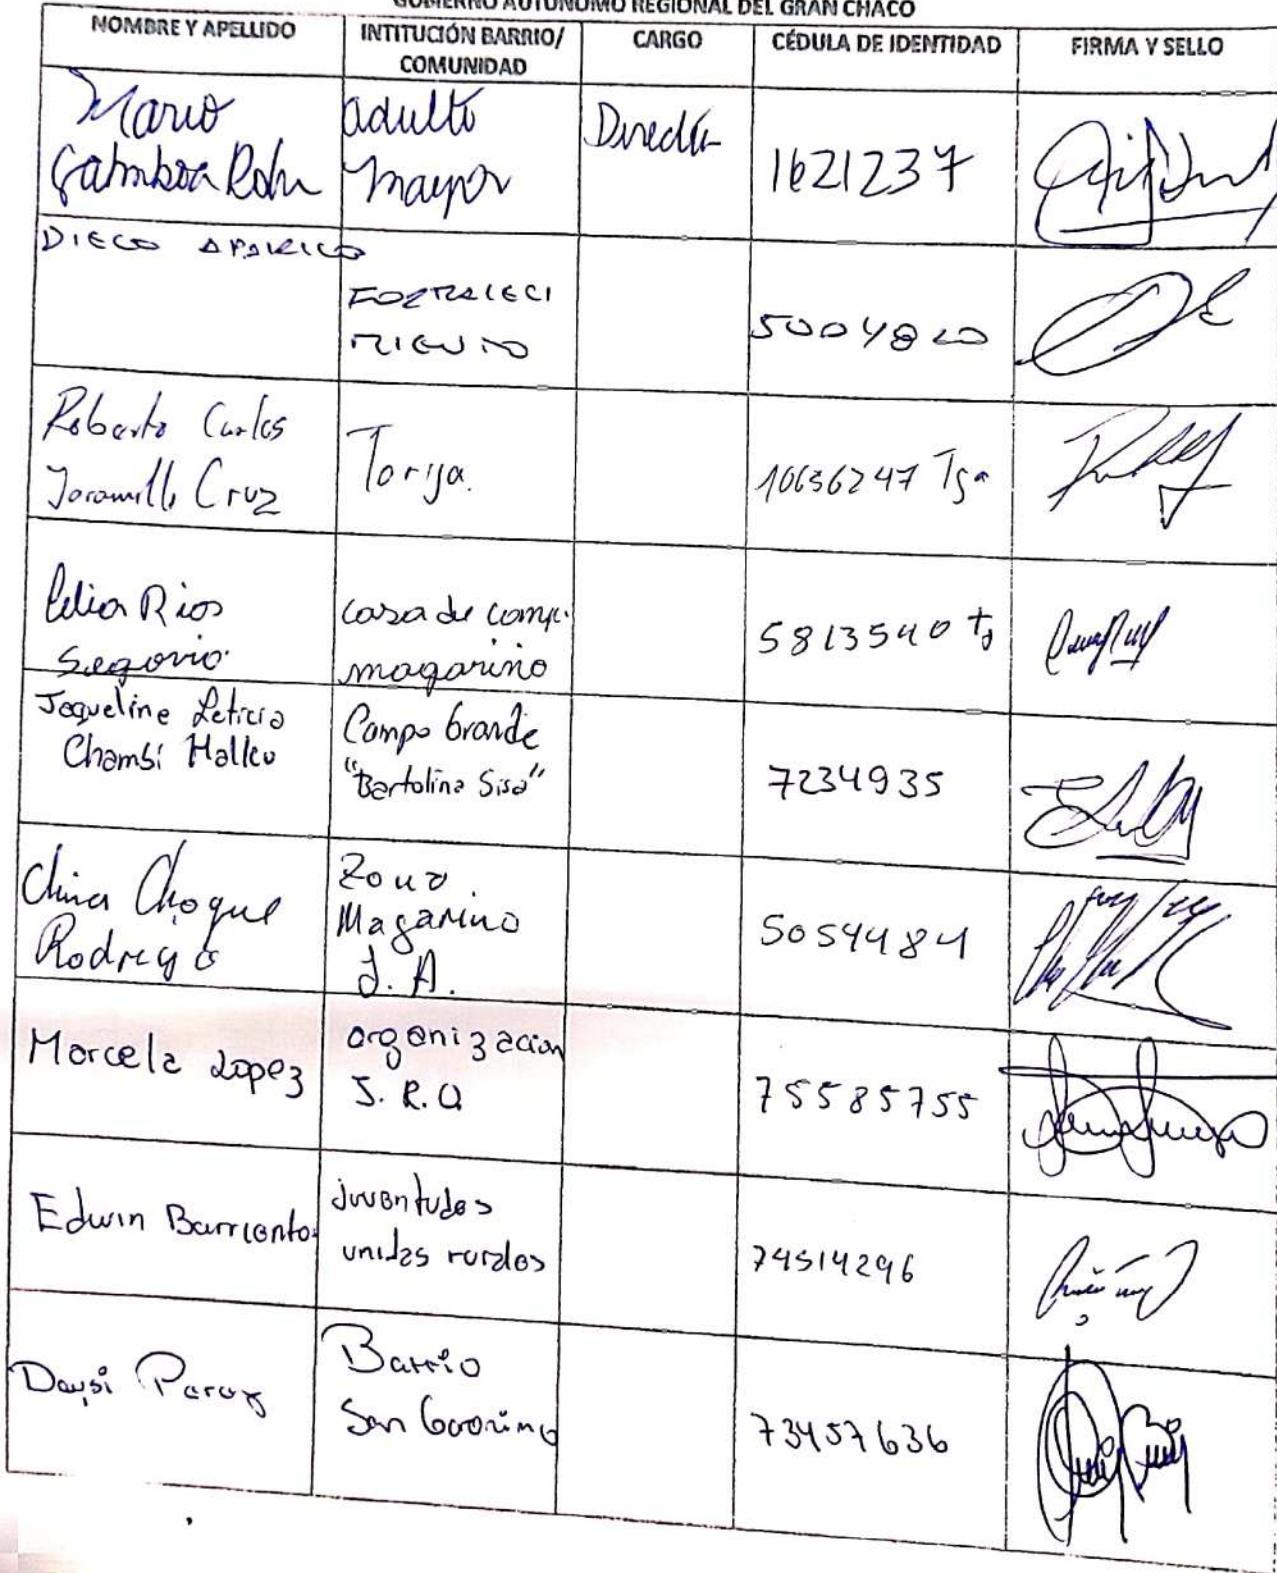 GOBIERNO AUTÓNOMO REGIONAL DEL GRAN CHACO
NOMBRE Y APELLIDO
INTITUCIÓN BARRIO/
COMUNIDAD
CARGO
CÉDULA DE IDENTIDAD
FIRMA Y SELLO
Mario
adulto
mayor
1621237
DIEGO APARICIO
FORTALECI
MIENTO
5004820
Roberto Carlos
Jaramillo Cruz
Torija.
10656247 Tja
Celia Rios
Segovia
casa de comp.
magariño
5813540 tj
Jaqueline Leticia
Chambi Mallcu
Campo Grande
"Bartolina Sisa"
7234935
China Choque
Rodrigo
Zona
Magariño
J. A.
5054484
Marcela Lopez
organización
J. R. Q
75585755
Edwin Barrientos
juventudes
unidas rurales
74514296
Daysi
Barrio
San
73457636